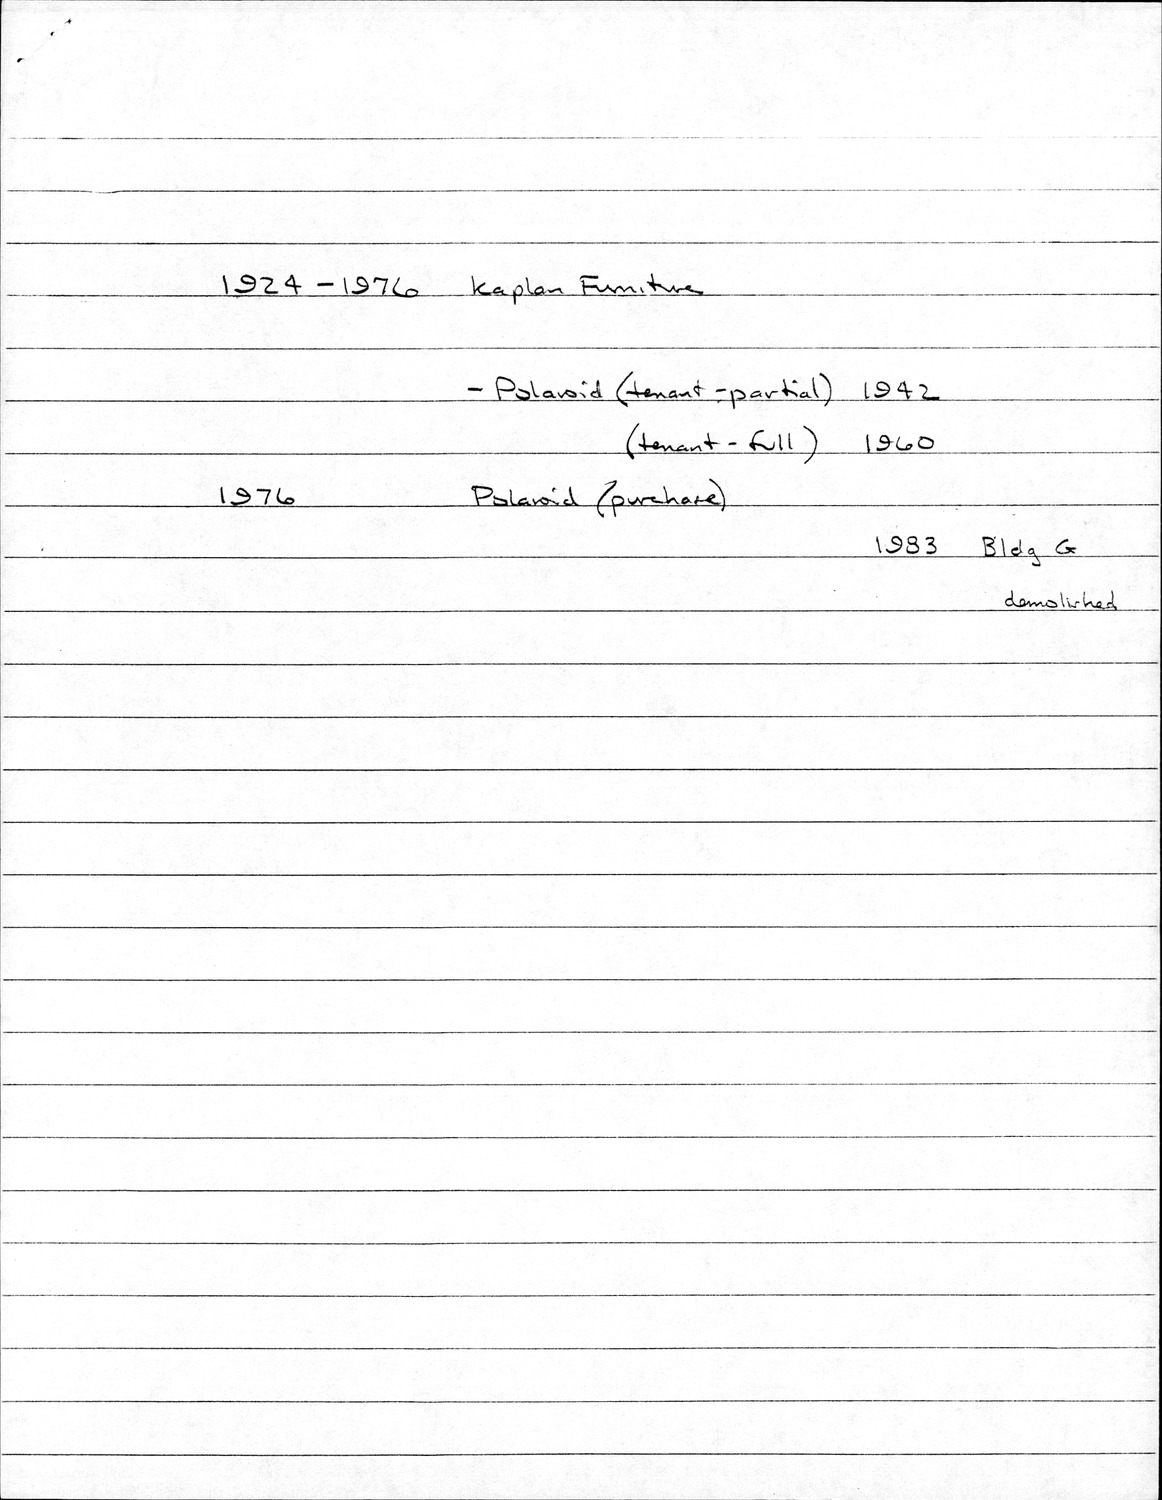 1924 - 1976 Kaplan Furniture
- Polaroid (tenant - partial) 1942
(tenant - full) 1960
1976 Polaroid (purchase)
1983 Bldg G
demolished